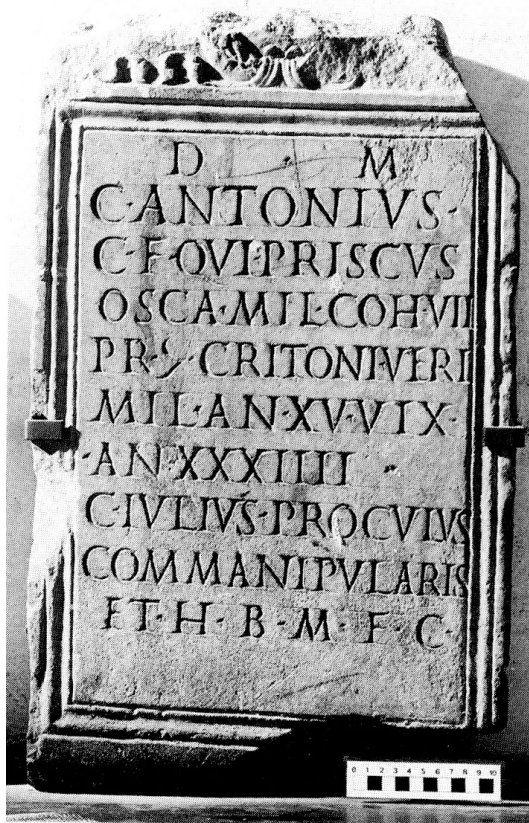 D M
C·ANTONIVS·
C·F·QVI·PRISCVS
OSCA·MIL·COH·VII
PR·𐆛·CRITONI·VERI
MIL·AN·XV·VIX·
·AN·XXXIIII
C·IVLIVS·PROCVLVS
COMMANIPVLARIS
ET·H·B·M·F·C·
0 1 2 3 4 5 6 7 8 9 10